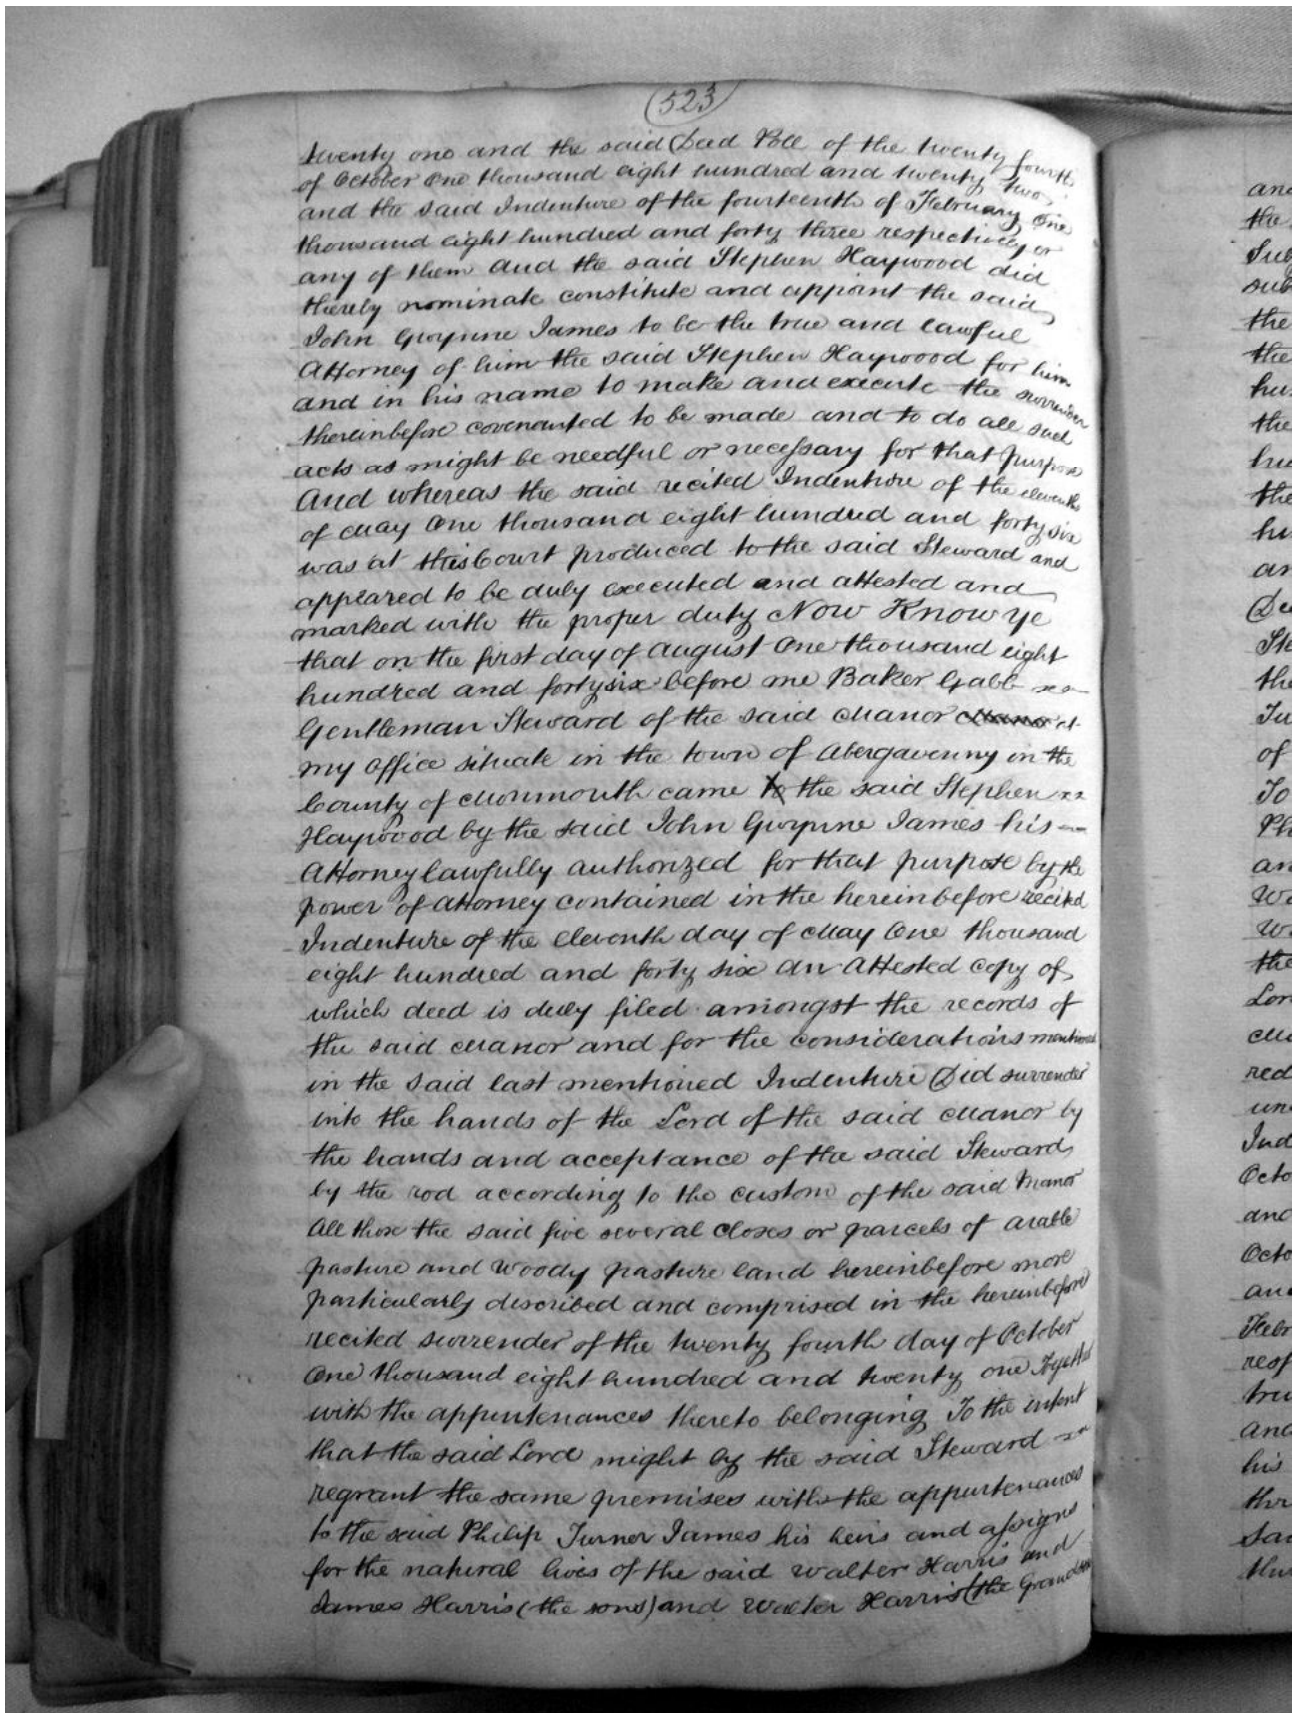 (523)
twenty one and the said Deed Poll of the twenty fourth
of October One thousand eight hundred and twenty two
and the said Indenture of the fourteenth of February One
thousand eight hundred and forty three respectively or
any of them And the said Stephen Haywood did
thereby nominate constitute and appoint the said
John Gwynne James to be the true and lawful
Attorney of him the said Stephen Haywood for him
and in his name to make and execute the surrender
thereinbefore covenanted to be made and to do all such
acts as might be needful or necessary for that purpose
And whereas the said recited Indenture of the eleventh
of May One thousand eight hundred and forty six
was at this Court produced to the said Steward and
appeared to be duly executed and attested and
marked with the proper duty Now Know ye
that on the first day of August One thousand eight
hundred and forty six before me Baker Gabb
Gentleman Steward of the said Manor Manor at
my office situate in the town of Abergavenny in the
County of Monmouth came to the said Stephen
Haywood by the said John Gwynne James his
Attorney lawfully authorized for that purpose by the
power of attorney contained in the hereinbefore recited
Indenture of the eleventh day of May One thousand
eight hundred and forty six an attested copy of
which deed is duly filed amongst the records of
the said Manor and for the considerations mentioned
in the said last mentioned Indenture Did surrender
into the hands of the Lord of the said Manor by
the hands and acceptance of the said Steward
by the rod according to the custom of the said Manor
All those the said five several closes or parcels of arable
pasture and woody pasture land hereinbefore more
particularly described and comprised in the hereinbefore
recited surrender of the twenty fourth day of October
One thousand eight hundred and twenty one Together
with the appurtenances thereto belonging To the intent
that the said Lord might by the said Steward
regrant the same premises with the appurtenances
to the said Philip Turner James his heirs and assigns
for the natural lives of the said Walter Harris and
James Harris (the sons) and Walter Harris (the Grandson